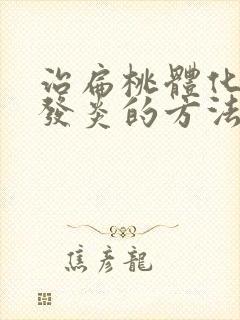 治扁桃體化
發炎的方法
焦彦龍